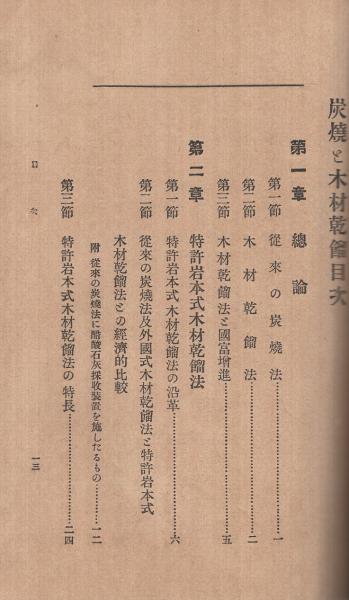 炭燒と木材乾餾目次
第一章 總論
第一節 從來の炭燒法…………一
第二節 木材乾餾法…………二
第三節 木材乾餾法と國富增進…………五
第二章 特許岩本式木材乾餾法
第一節 特許岩本式木材乾餾法の沿革…………六
第二節 從來の炭燒法及外國式木材乾餾法と特許岩本式
木材乾餾法との經濟的比較
附 從來の炭燒法に醋酸石灰採收裝置を施したるもの…………一二
第三節 特許岩本式木材乾餾法の特長…………二四
目次
一三